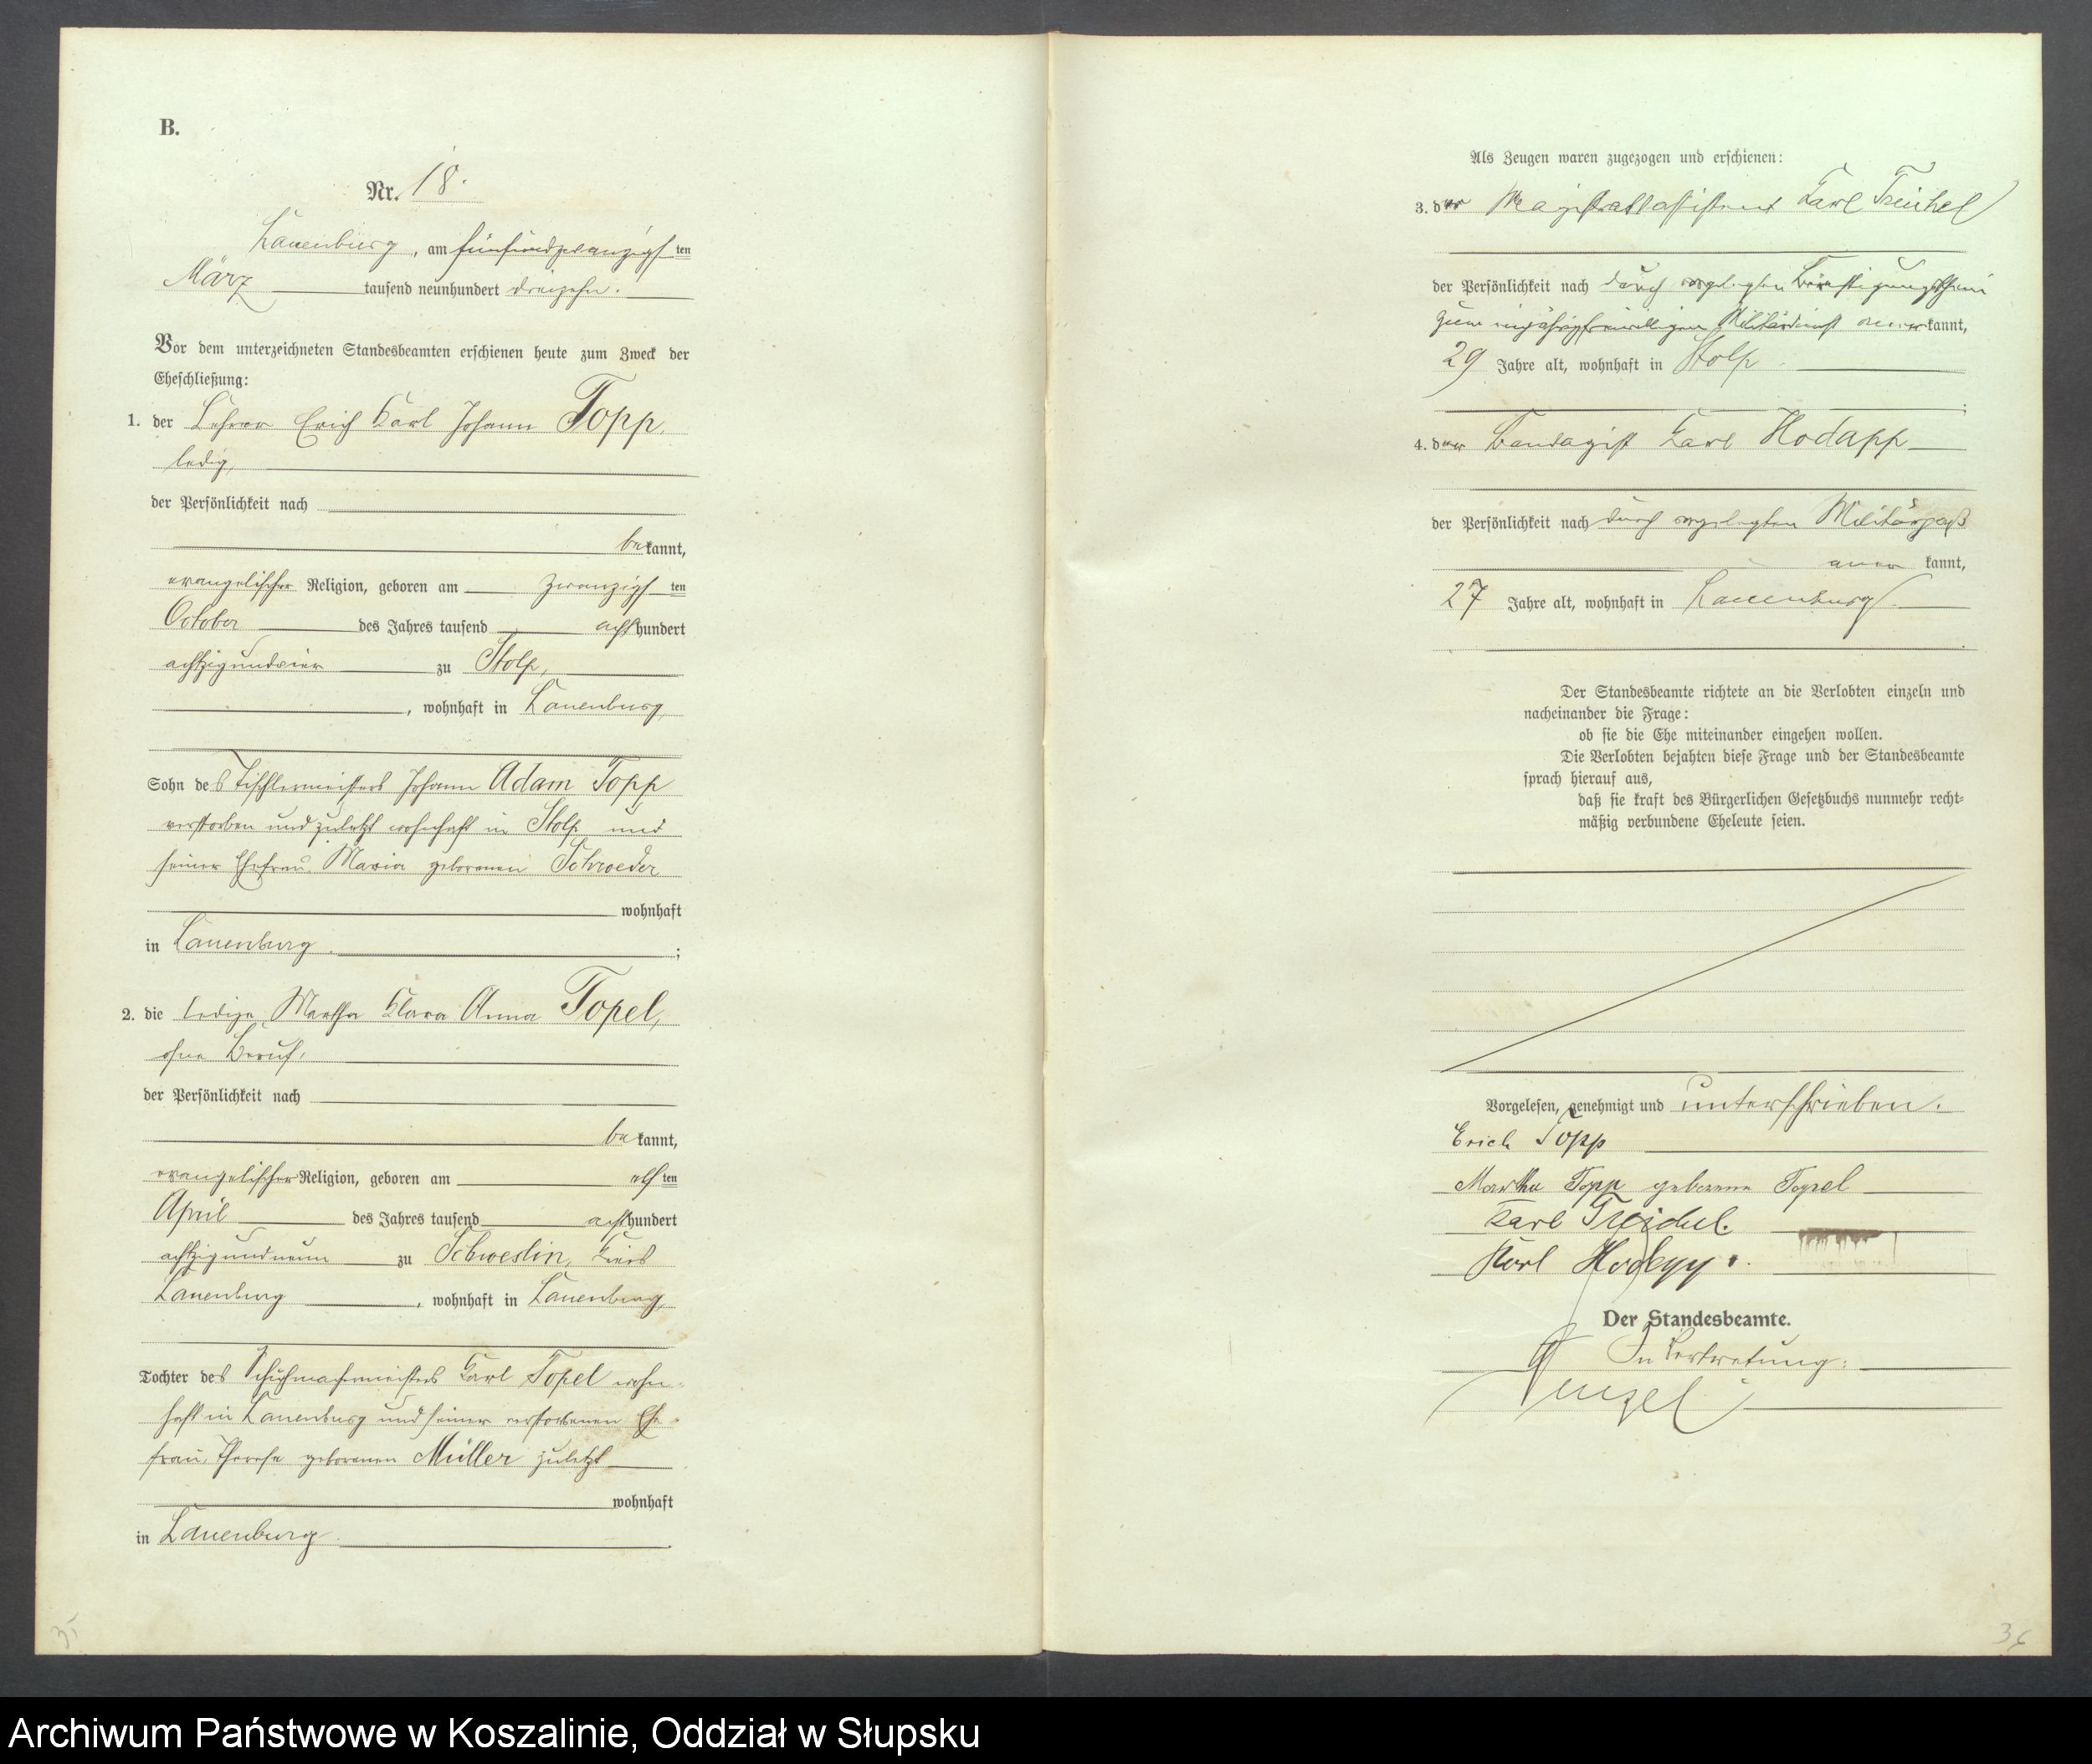 B.
Nr. 18.
Lauenburg, am fünfundzwanzigsten
März tausend neunhundert dreizehn.
Vor dem unterzeichneten Standesbeamten erschienen heute zum Zweck der
Eheschließung:
1. der Lehrer Erich Karl Johann Topp,
ledig,
der Persönlichkeit nach
bekannt,
evangelischer Religion, geboren am zwanzigsten
October des Jahres tausend achthundert
achtzigundvier zu Stolp,
, wohnhaft in Lauenburg,
Sohn des Tischlermeisters Johann Adam Topp
verstorben und zuletzt wohnhaft in Stolp und
seiner Ehefrau Maria geborenen Schroeder
wohnhaft
in Lauenburg.;
2. die ledige Martha Klara Anna Topel,
ohne Beruf,
der Persönlichkeit nach
bekannt,
evangelischer Religion, geboren am elften
April des Jahres tausend achthundert
achtzigundneun zu Schweslin, Kreis
Lauenburg, wohnhaft in Lauenburg,
Tochter des Schuhmachermeisters Karl Topel wohn-
haft in Lauenburg und seiner verstorbenen Ehe-
frau Therese geborenen Müller zuletzt
wohnhaft
in Lauenburg.
35
Als Zeugen waren zugezogen und erschienen:
3. der Magistratsassistent Karl Treichel
der Persönlichkeit nach durch vorgelegten
zum einjährigfreiwilligen Militärdienst anerkannt,
29 Jahre alt, wohnhaft in Stolp
;
4. der Bandagist Karl Hodapp
der Persönlichkeit nach durch vorgelegten Militärpaß
anerkannt,
27 Jahre alt, wohnhaft in Lauenburg.
Der Standesbeamte richtete an die Verlobten einzeln und
nacheinander die Frage:
ob sie die Ehe miteinander eingehen wollen.
Die Verlobten bejahten diese Frage und der Standesbeamte
sprach hierauf aus,
daß sie kraft des Bürgerlichen Gesetzbuchs nunmehr recht-
mäßig verbundene Eheleute seien.
Vorgelesen, genehmigt und unterschrieben.
Erich Topp
Martha Topp geborene Topel
Karl Treichel.
Karl Hodapp.
Der Standesbeamte.
In Vertretung:
36
Archiwum Państwowe w Koszalinie, Oddział w Słupsku